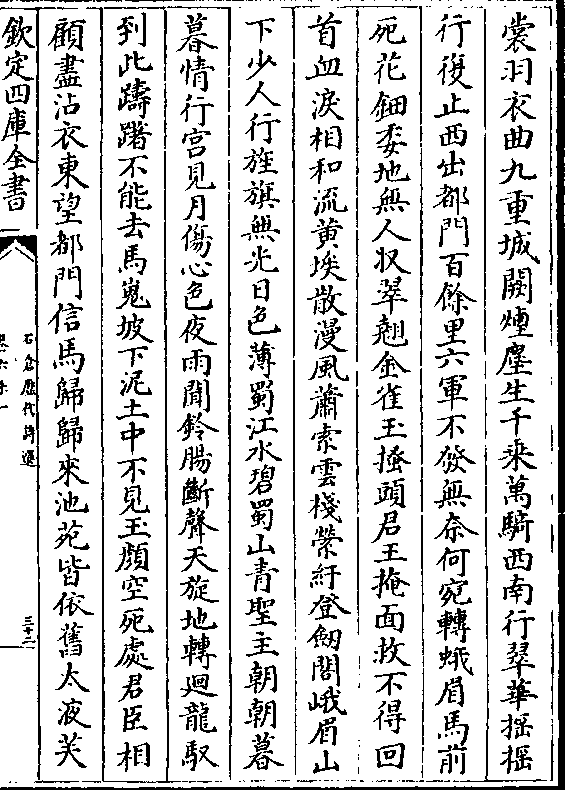 裳羽衣曲九重城闕煙塵生千乗萬騎西南行翠華揺揺
行復止西出都門百餘里六軍不發無奈何宛轉蛾眉馬前
死花鈿委地無人収翠翹金雀玉搔頭君王掩面救不得回
首血淚相和流黄埃散漫風蕭索雲棧縈紆登劒閣峨眉山
下少人行旌旗無光日色薄蜀江水碧蜀山青聖主朝朝暮
暮情行宫見月傷心色夜雨聞鈴腸斷聲天旋地轉迴龍馭
到此躊躇不能去馬嵬坡下泥土中不見玉顔空死處君臣相
顧盡沾衣東望都門信馬歸歸來池苑皆依舊太液芙
欽定四庫全書
石倉歴代詩選
三十二